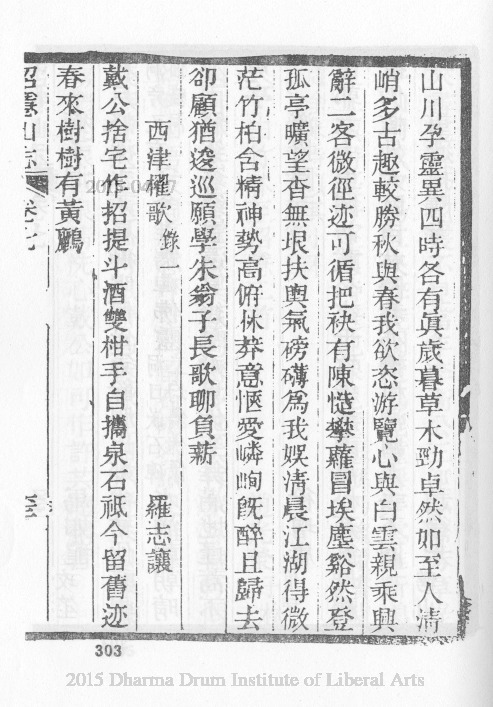 山川孕靈異四時各有眞歲暮草木勁卓然如至人清
峭多古趣較勝秋與春我欲恣游覽心與白雲親乘興
辭二客微徑迹可循把袂有陳愷攀蘿冒埃塵谿然登
孤亭曠望杳無垠扶輿氣磅礴爲我娛清晨江湖得微
茫竹柏含精神勢高俯林莽意愜愛嶙峋旣醉且歸去
卻顧猶逡巡願學朱翁子長歌聊負薪
西津櫂歌 錄一 羅志讓
戴公捨宅作招提斗酒雙柑手自攜泉石祗今留舊迹
春來樹樹有黃鸝
招隱山志 卷七
303
2015 Dharma Drum Institute of Liberal Arts